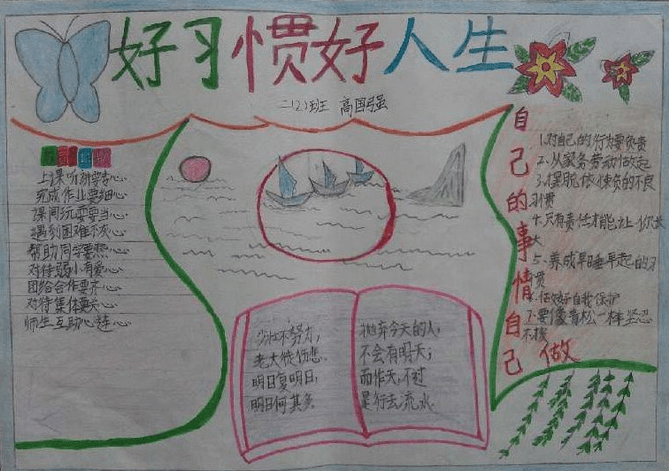 好习惯好人生
二(2)班 高国强
上课听讲要专心
完成作业要细心
课间玩耍要当心
遇到困难不灰心
帮助同学要热心
对待弱小有爱心
团结合作要齐心
对待集体要关心
师生互动心连心
少壮不努力,
老大徒伤悲.
明日复明日,
明日何其多.
抛弃今天的人,
不会有明天;
而昨天,不过
是行去流水.
自己的事情自己做
1.对自己的行为要负责
2.从家务劳动做起
3.摆脱依
的不良
习惯
4.只有责任才能让你长
大
5.养成早睡早起的习
惯
6.做好自我保护
7.要像青松一样坚忍
不拔